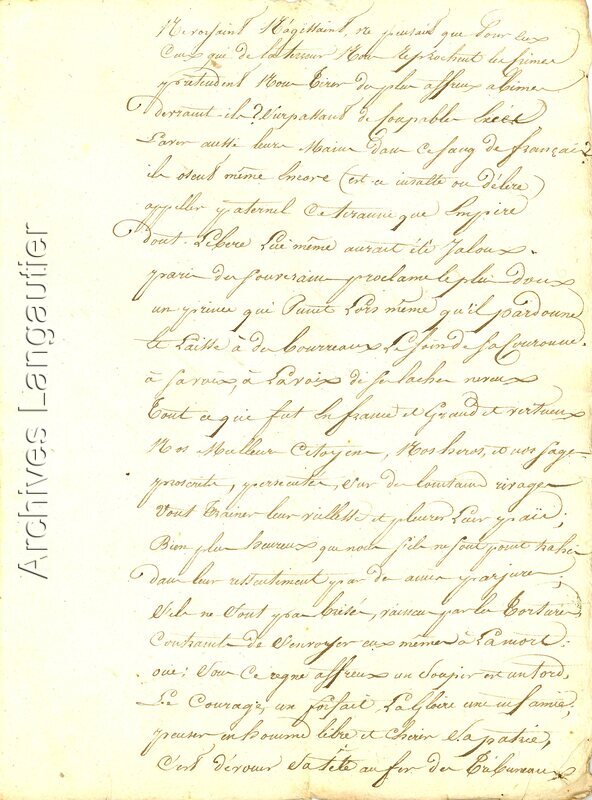 ne pensait que pour eux
Ceux qui de la terreur Nous Reprochent les Crimes
prétendent Nous tirer du plus affreux abîme
de coupable
Laver aussi leurs Mains dans ce sang de français?
ils osent même Encore (est ce insulte ou délire)
appeller paternel Cet Empire
dont Libere Lui même aurait été Jaloux.
des Souverains proclame le plus doux
un prince qui Punit Lors même qu'il pardonne
et Laisse à des bourreaux Le soin de sa Couronne.
à sa voix, à La voix de ses laches neveux
Tout ce que fut En france et Grand et vertueux
Nos Meilleurs Citoyens, Nos heros, et nos sages
proscrits, persecutés, sur de lointains rivages
Vont trainer leur viellesse et pleurer Leur païs;
Bien plus heureux que nous s'ils ne sont point trahis
dans leur ressentiment par des amis parjures;
S'ils ne sont pas brisé, vaincu par les tortures
Contraints de s'envoyer eux mêmes à La mort.
oui; sous ce regne affreux un soupir est un tord,
Le Courage, un forfait, La Gloire une infamie;
penser en homme libre et cherir sa patrie,
C'est dévouer Sa tête au fer des Tribuneaux
Archives Langautier